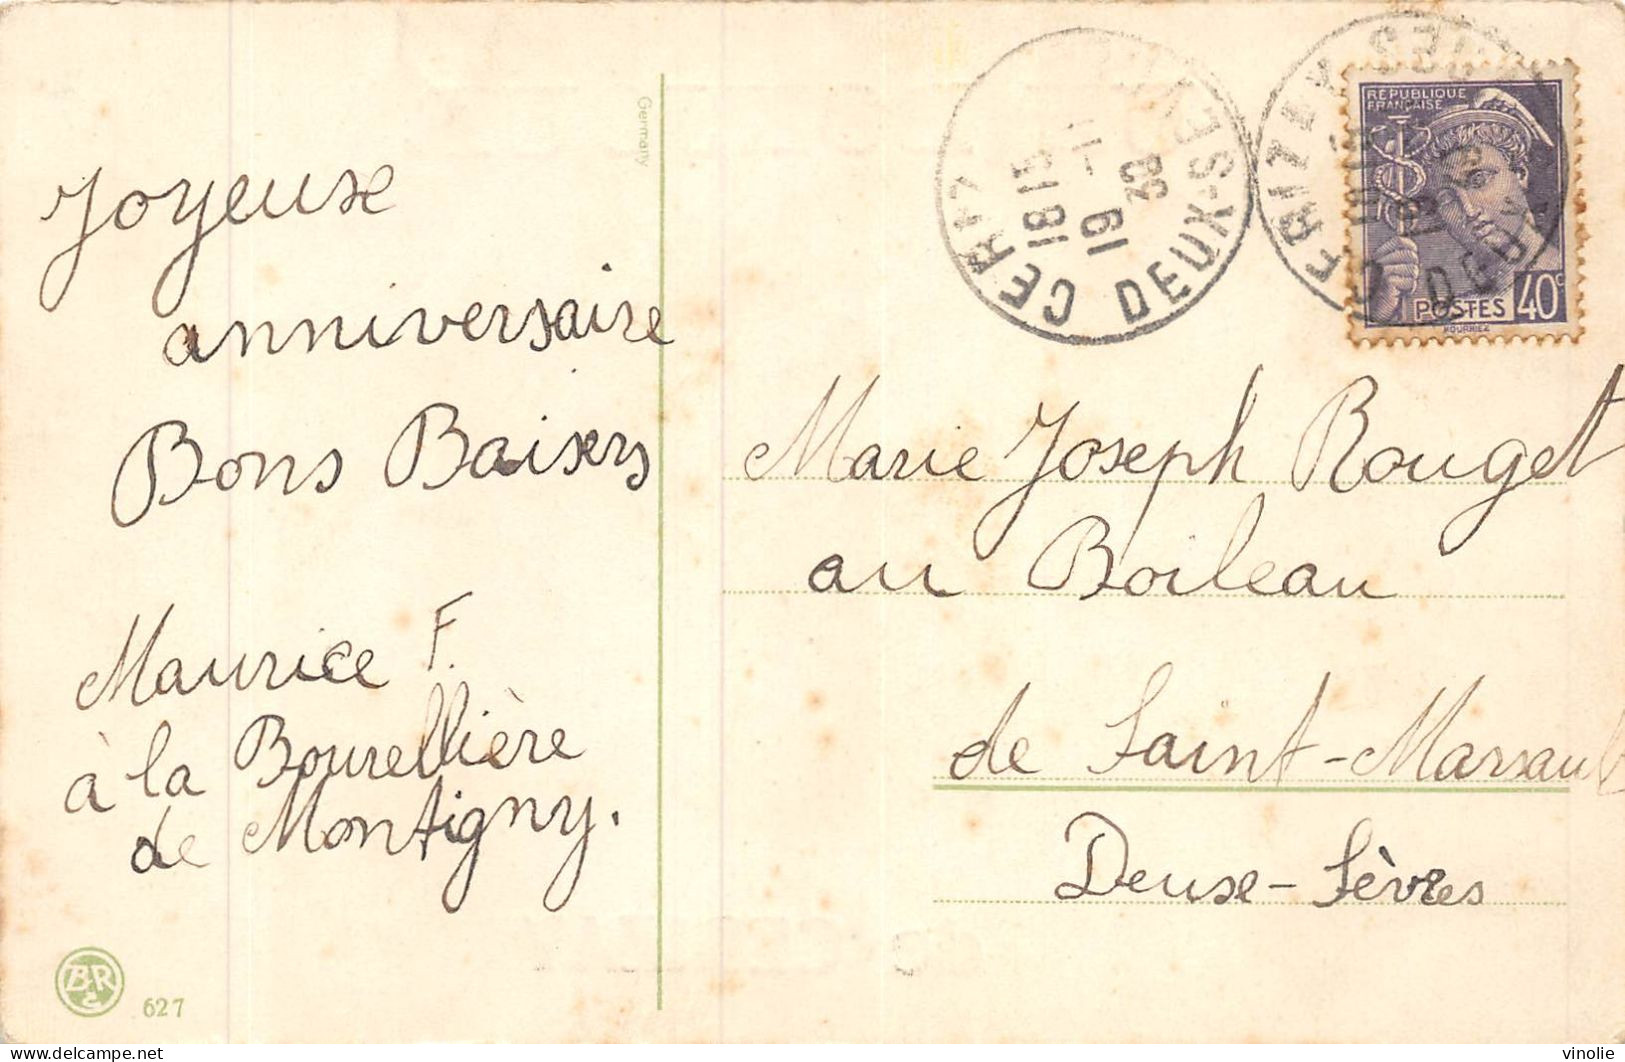 Joyeuse
anniversaire
Bons Baisers
Maurice F.
à la Bourellière
de Montigny.
B&R
627
Germany
CERIZ
DEUX-SEVRES
18 15
11 - 1
19
39
REPUBLIQUE
FRANÇAISE
POSTES 40c
HOURRIEZ
Marie Joseph Rouget
au Boileau
de Saint-Marsault
Deuxe-Sèvres
delcampe.net
vinolie